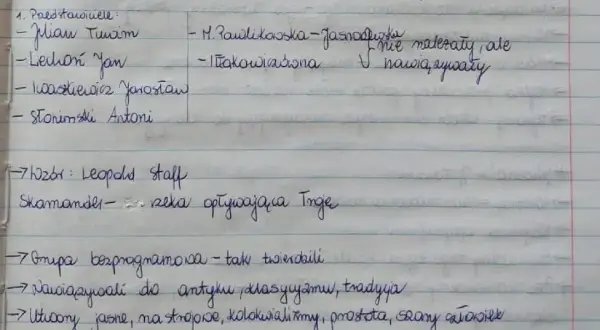 1. Przedstawiciele:
- Julian Tuwim - M. Pawlikowska - Jasnorzewska
- Lechoń Jan - Iłłakowiczówna nie należały, ale nawiązywały
- Iwaszkiewicz Jarosław
- Słonimski Antoni
→ Wzór: Leopold Staff
Skamander - rzeka opływająca Troję
→ Grupa bezprogramowa - tak twierdzili
→ Nawiązywali do antyku, klasycyzmu, tradycja
→ Utwory jasne, nastrojowe, kolokwializmy, prostota, szary człowiek